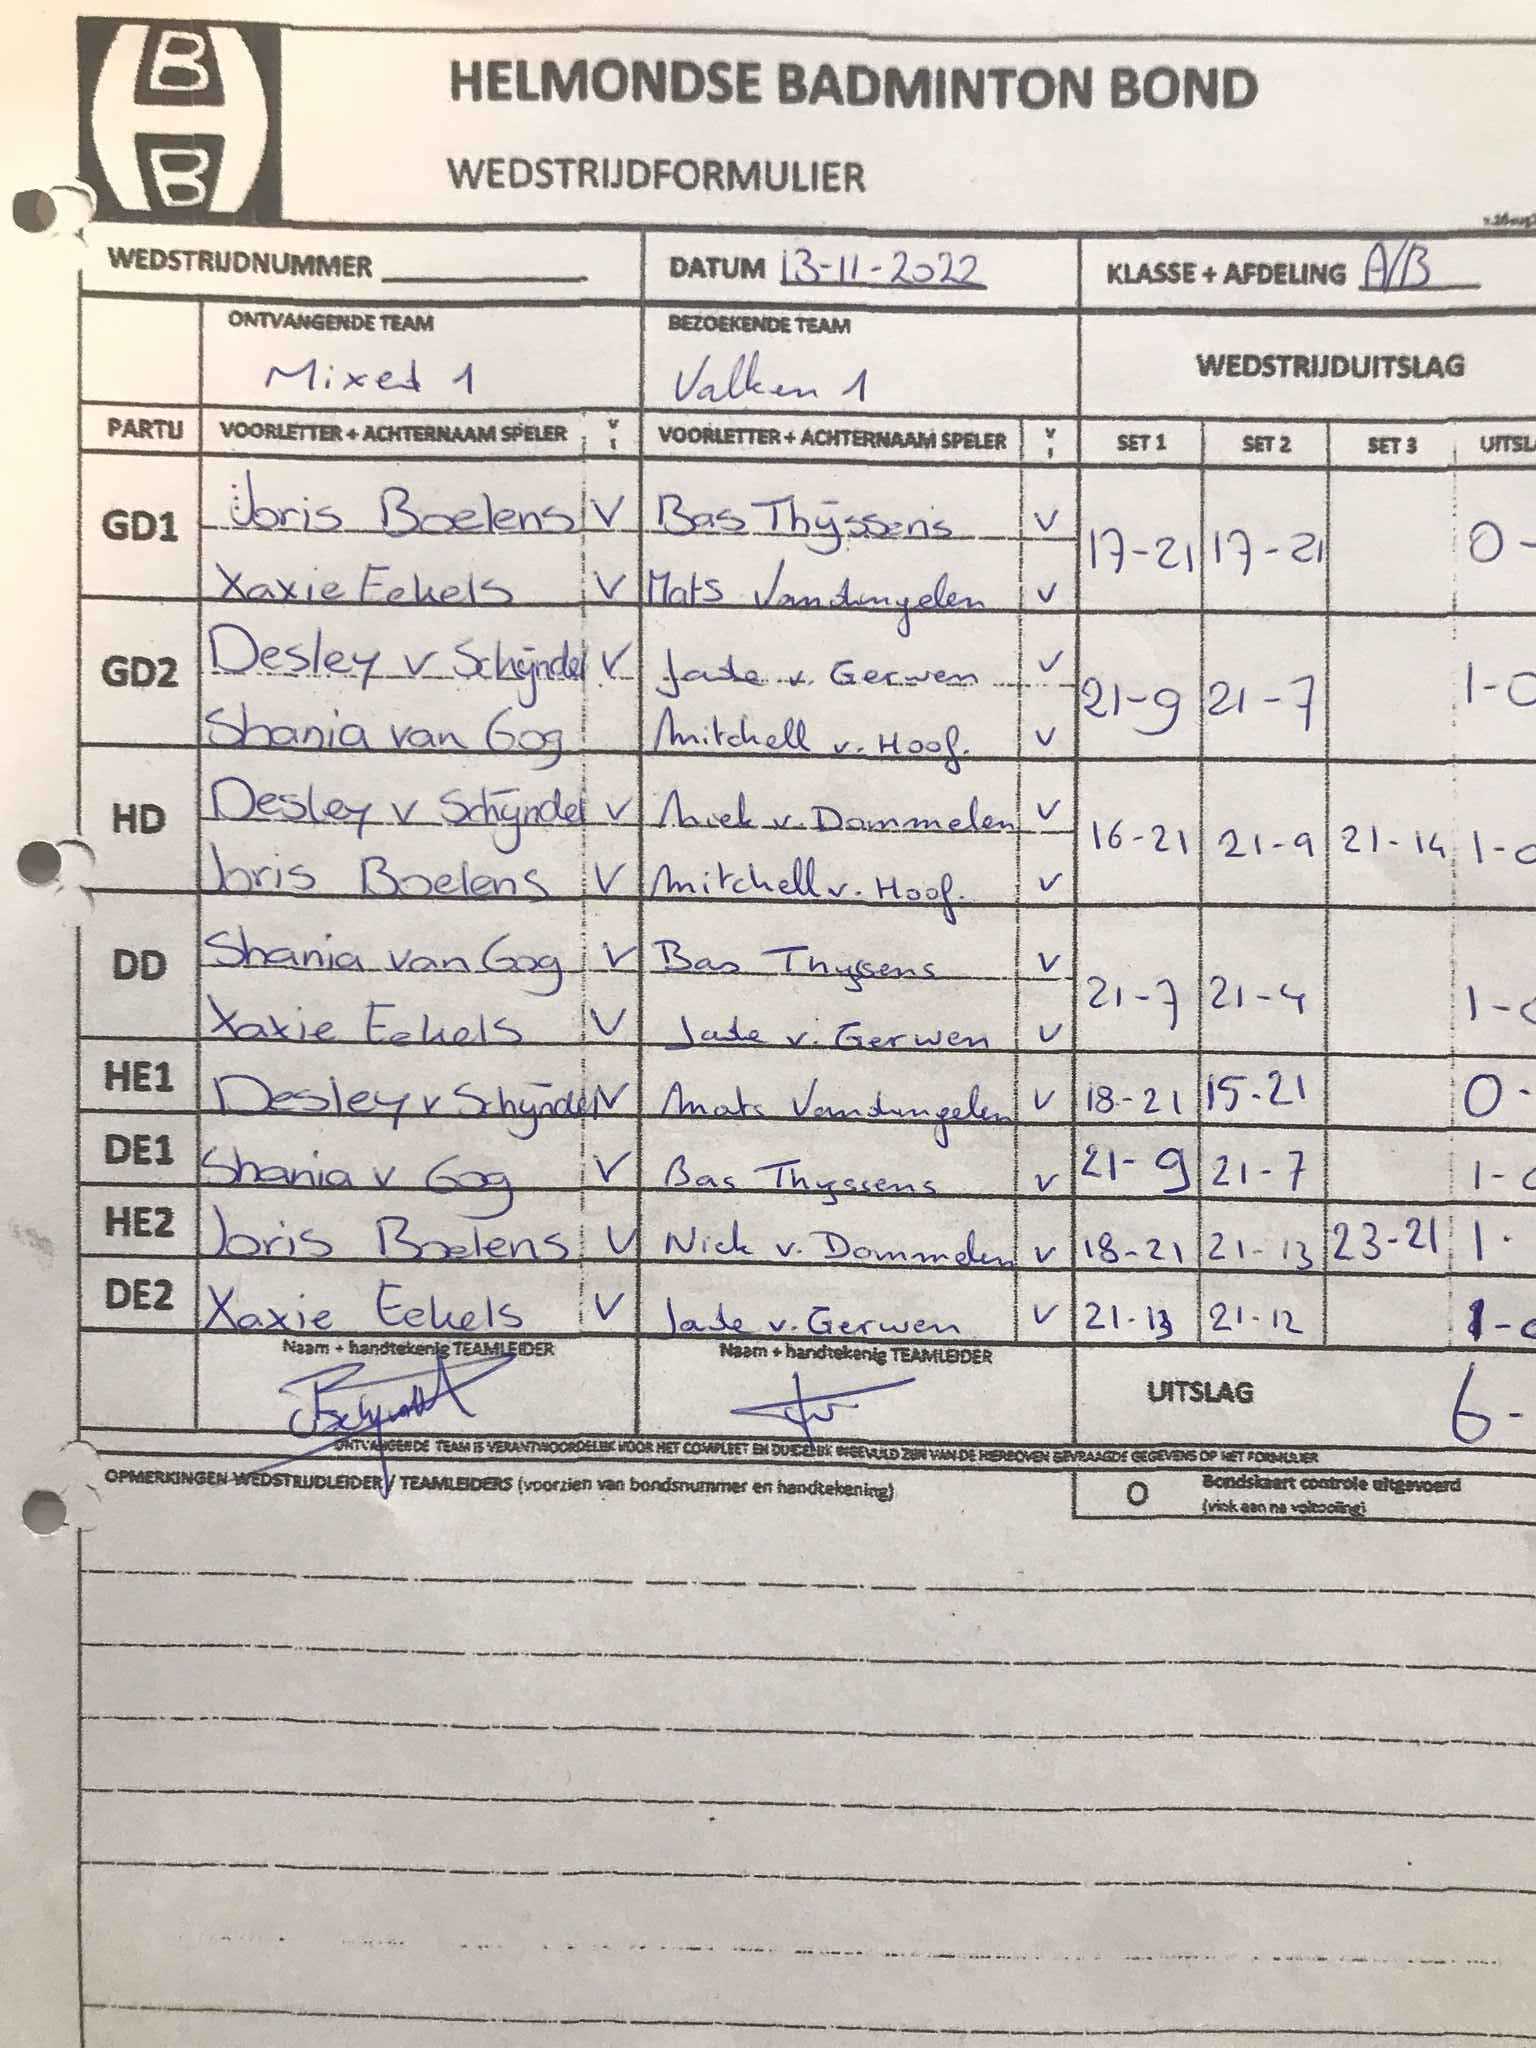 B
B
HELMONDSE BADMINTON BOND
WEDSTRIJDFORMULIER
WEDSTRIJDNUMMER DATUM 13-11-2022 KLASSE + AFDELING A/B
ONTVANGENDE TEAM BEZOEKENDE TEAM WEDSTRIJDUITSLAG
Mixed 1 Valken 1
PARTIJ VOORLETTER + ACHTERNAAM SPELER V VOORLETTER + ACHTERNAAM SPELER V SET 1 SET 2 SET 3 UITSLA
GD1 Joris Boelens V Bas Thijssens V 17-21 17-21 0-
Xaxie Eekels V Mats Vandungelen V
GD2 Desley v Schijndel V Jade v. Gerwen V 21-9 21-7 1-0
Shania van Gog Mitchell v. Hoof. V
HD Desley v Schijndel V Niek v. Dommelen V 16-21 21-9 21-14 1-0
Joris Boelens V Mitchell v. Hoof. V
DD Shania van Gog V Bas Thyssens V 21-7 21-4 1-0
Xaxie Eekels V Jade v. Gerwen V
HE1 Desley v Schijndel V Mats Vandungelen V 18-21 15-21 0-
DE1 Shania v Gog V Bas Thyssens V 21-9 21-7 1-0
HE2 Joris Boelens V Nick v. Dommelen V 18-21 21-13 23-21 1-
DE2 Xaxie Eekels V Jade v. Gerwen V 21-13 21-12 1-0
Naam + handtekenig TEAMLEIDER Naam + handtekenig TEAMLEIDER
UITSLAG 6-
ONTVANGENDE TEAM IS VERANTWOORDELIJK VOOR HET COMPLEET EN DUIDELIJK INGEVULD ZIJN VAN DE HIERBOVEN GEVRAAGDE GEGEVENS OP HET FORMULIER
OPMERKINGEN WEDSTRIJDLEIDER / TEAMLEIDERS (voorzien van bondsnummer en handtekening) O Bondskaart controle uitgevoerd
(vink aan na voltooiing)